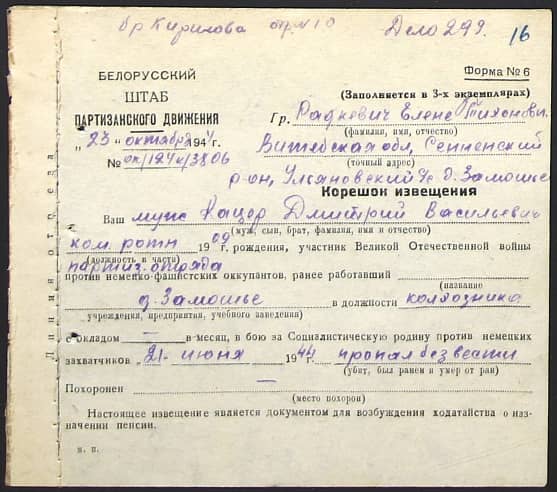 бр Кирилова отр. N 10 Дело 299. 16
Форма № 6
БЕЛОРУССКИЙ
ШТАБ
ПАРТИЗАНСКОГО ДВИЖЕНИЯ
„23“ октября 1944 г.
№ оп/124к/3806
(Заполняется в 3-х экземплярах)
Гр. Радкевич Елене Тихоновы.
(фамилия, имя, отчество)
Витебская обл, Сенненский
(точный адрес)
р-он, Ульяновский с/с д. Замошье
Корешок извещения
Ваш муж Кацор Дмитрий Васильевич
(муж, сын, брат, фамилия, имя и отчество)
ком. роты 1909 рождения, участник Великой Отечественной войны
(должность в части)
партиз. отряда
против немецко-фашистских оккупантов, ранее работавший
(название
д. Замошье в должности колхозника
учреждения, предприятия, учебного заведения)
с окладом — в месяц, в бою за Социалистическую родину против немецких
захватчиков 21 июня 1944 г. пропал без вести
(убит, был ранен и умер от ран)
Похоронен —
(место похорон)
Настоящее извещение является документом для возбуждения ходатайства о наз-
начении пенсии.
м. п.
Линия отреза